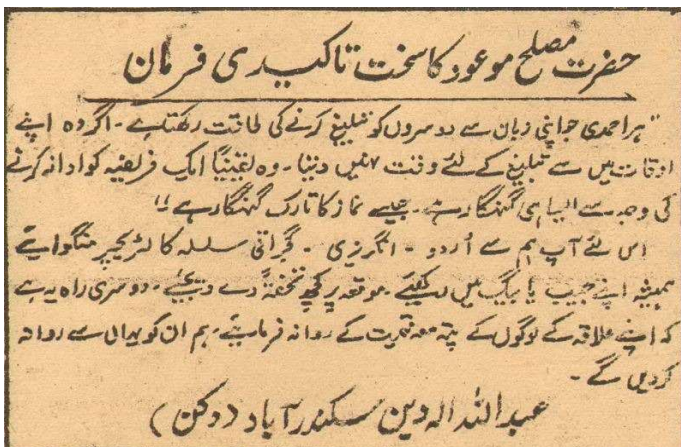 حضرت مصلح موعود کا سخت تاکیدی فرمان
"ہر احمدی جو اپنی زبان سے دوسروں کو تبلیغ کرنے کی طاقت رکھتا ہے۔ اگر وہ اپنے
اوقات میں سے تبلیغ کے لئے وقت نہیں دیتا۔ وہ یقیناً ایک فریضہ کو ادا نہ کرنے
کی وجہ سے ایسا ہی گنہگار ہے۔ جیسے نماز کا تارک گنہگار ہے!!
اس لئے آپ ہم سے اُردو - انگریزی - گجراتی سلسلہ کا لٹریچر منگوائیے
ہمیشہ اپنے جیب یا بیگ میں رکھئے۔ موقعہ پر کچھ تحفۃً دے دیجئے۔ دوسری راہ یہ ہے
کہ اپنے علاقہ کے لوگوں کے پتہ معہ قیمت کے روانہ فرمائیے۔ ہم ان کو یہاں سے روانہ
کر دیں گے۔
عبداللہ الہ دین سکندر آباد (دکن)